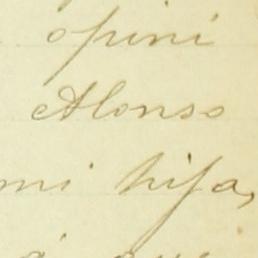 opini
Alonso
mi hija,
á que